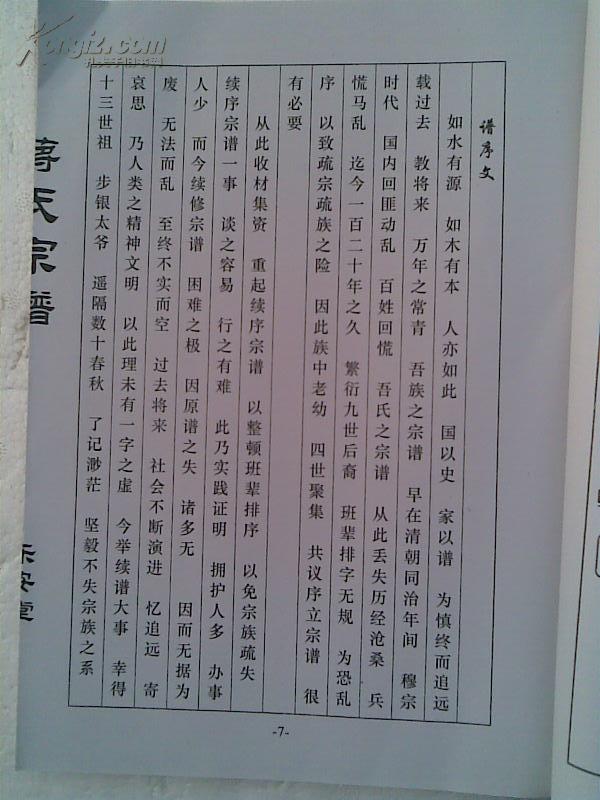 Kongfz.com
孔夫子旧书网
谱序文
如水有源 如木有本 人亦如此 国以史 家以谱 为慎终而追远
载过去 教将来 万年之常青 吾族之宗谱 早在清朝同治年间 穆宗
时代 国内回匪动乱 百姓回慌 吾氏之宗谱 从此丢失历经沧桑 兵
慌马乱 迄今一百二十年之久 繁衍九世后裔 班辈排字无规 为恐乱
序 以致疏宗疏族之险 因此族中老幼 四世聚集 共议序立宗谱 很
有必要
从此收材集资 重起续序宗谱 以整顿班辈排序 以免宗族疏失
续序宗谱一事 谈之容易 行之有难 此乃实践证明 拥护人多 办事
人少 而今续修宗谱 困难之极 因原谱之失 诸多无 因而无据为
废 无法而乱 至终不实而空 过去将来 社会不断演进 忆追远 寄
哀思 乃人类之精神文明 以此理未有一字之虚 今举续谱大事 幸得
十三世祖 步银太爷 遥隔数十春秋 了记渺茫 坚毅不失宗族之系
氏宗谱
安堂
-7-